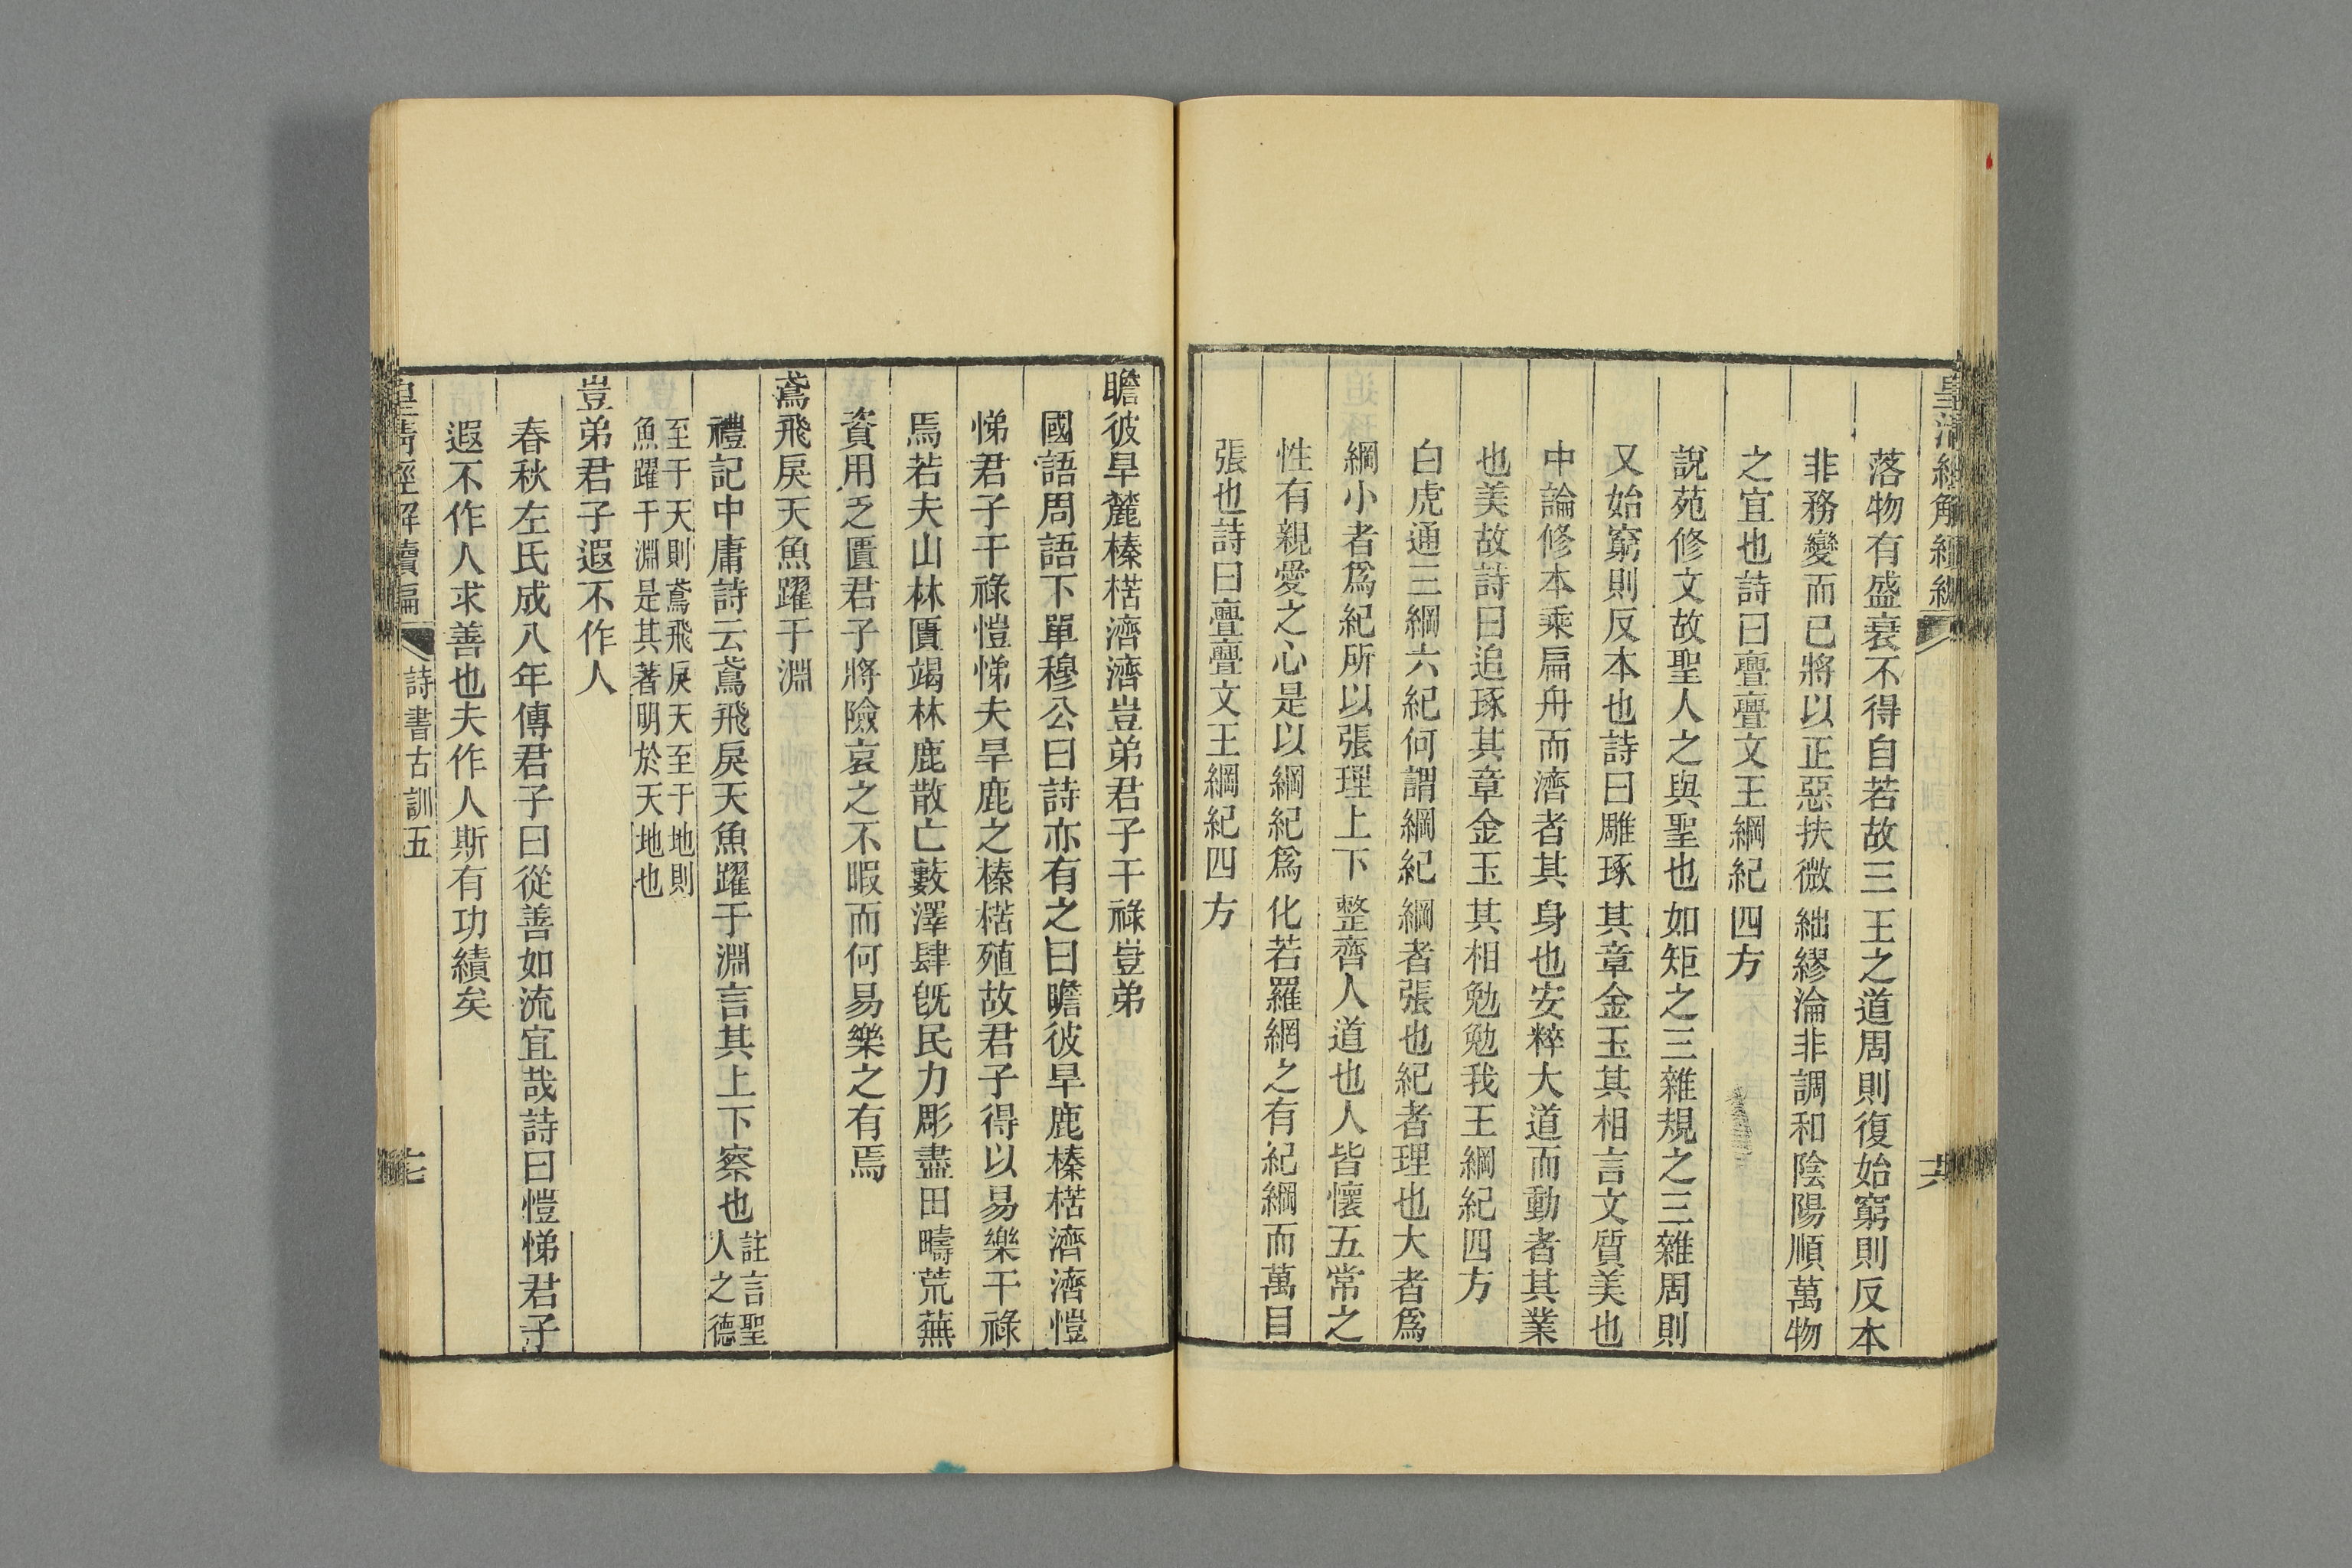 皇清經解續編
共
落物有盛衰不得自若故三王之道周則復始窮則反本
非務變而已將以正惡扶微絀繆淪非調和陰陽順萬物
之宜也詩曰亹亹文王綱紀四方
說苑修文故聖人之與聖也如矩之三雜規之三雜周則
又始窮則反本也詩曰雕琢其章金玉其相言文質美也
中論修本乘扁舟而濟者其身也安粹大道而動者其業
也美故詩曰追琢其章金玉其相勉勉我王綱紀四方
白虎通三綱六紀何謂綱紀綱者張也紀者理也大者爲
綱小者爲紀所以張理上下整齊人道也人皆懷五常之
性有親愛之心是以綱紀爲化若羅網之有紀綱而萬目
張也詩曰亹亹文王綱紀四方
瞻彼旱麓榛楛濟濟豈弟君子干祿豈弟
國語周語下單穆公曰詩亦有之曰瞻彼旱鹿榛楛濟濟愷
悌君子干祿愷悌夫旱鹿之榛楛殖故君子得以易樂干祿
焉若夫山林匱竭林鹿散亡藪澤肆旣民力彫盡田疇荒蕪
資用乏匱君子將險哀之不暇而何易樂之有焉
鳶飛戾天魚躍于淵
禮記中庸詩云鳶飛戾天魚躍于淵言其上下察也註言聖
人之德
至于天則鳶飛戾天至于地則
魚躍于淵是其著明於天地也
豈弟君子遐不作人
春秋左氏成八年傳君子曰從善如流宜哉詩曰愷悌君子
遐不作人求善也夫作人斯有功績矣
皇清經解續編
詩書古訓五
七